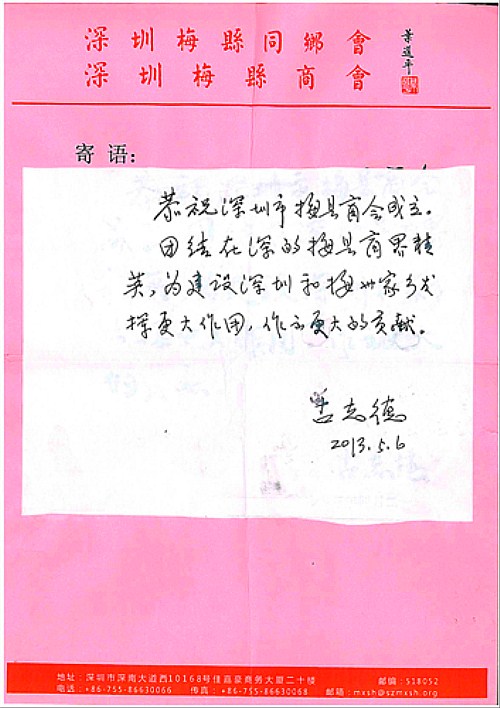 深圳梅縣同鄉會
深圳梅縣商會
葉選平
寄语:
恭祝深圳市梅县商会成立。
团结在深的梅县商界精
英,为建设深圳和梅州家乡发
挥更大作用,作出更大的贡献。
志德
2013.5.6
地址:深圳市深南大道西10168号佳嘉豪商务大厦二十楼
邮编:518052
电话:+86-755-86630066 传真:+86-755-86630068 邮箱:mxsh@szmxsh.org